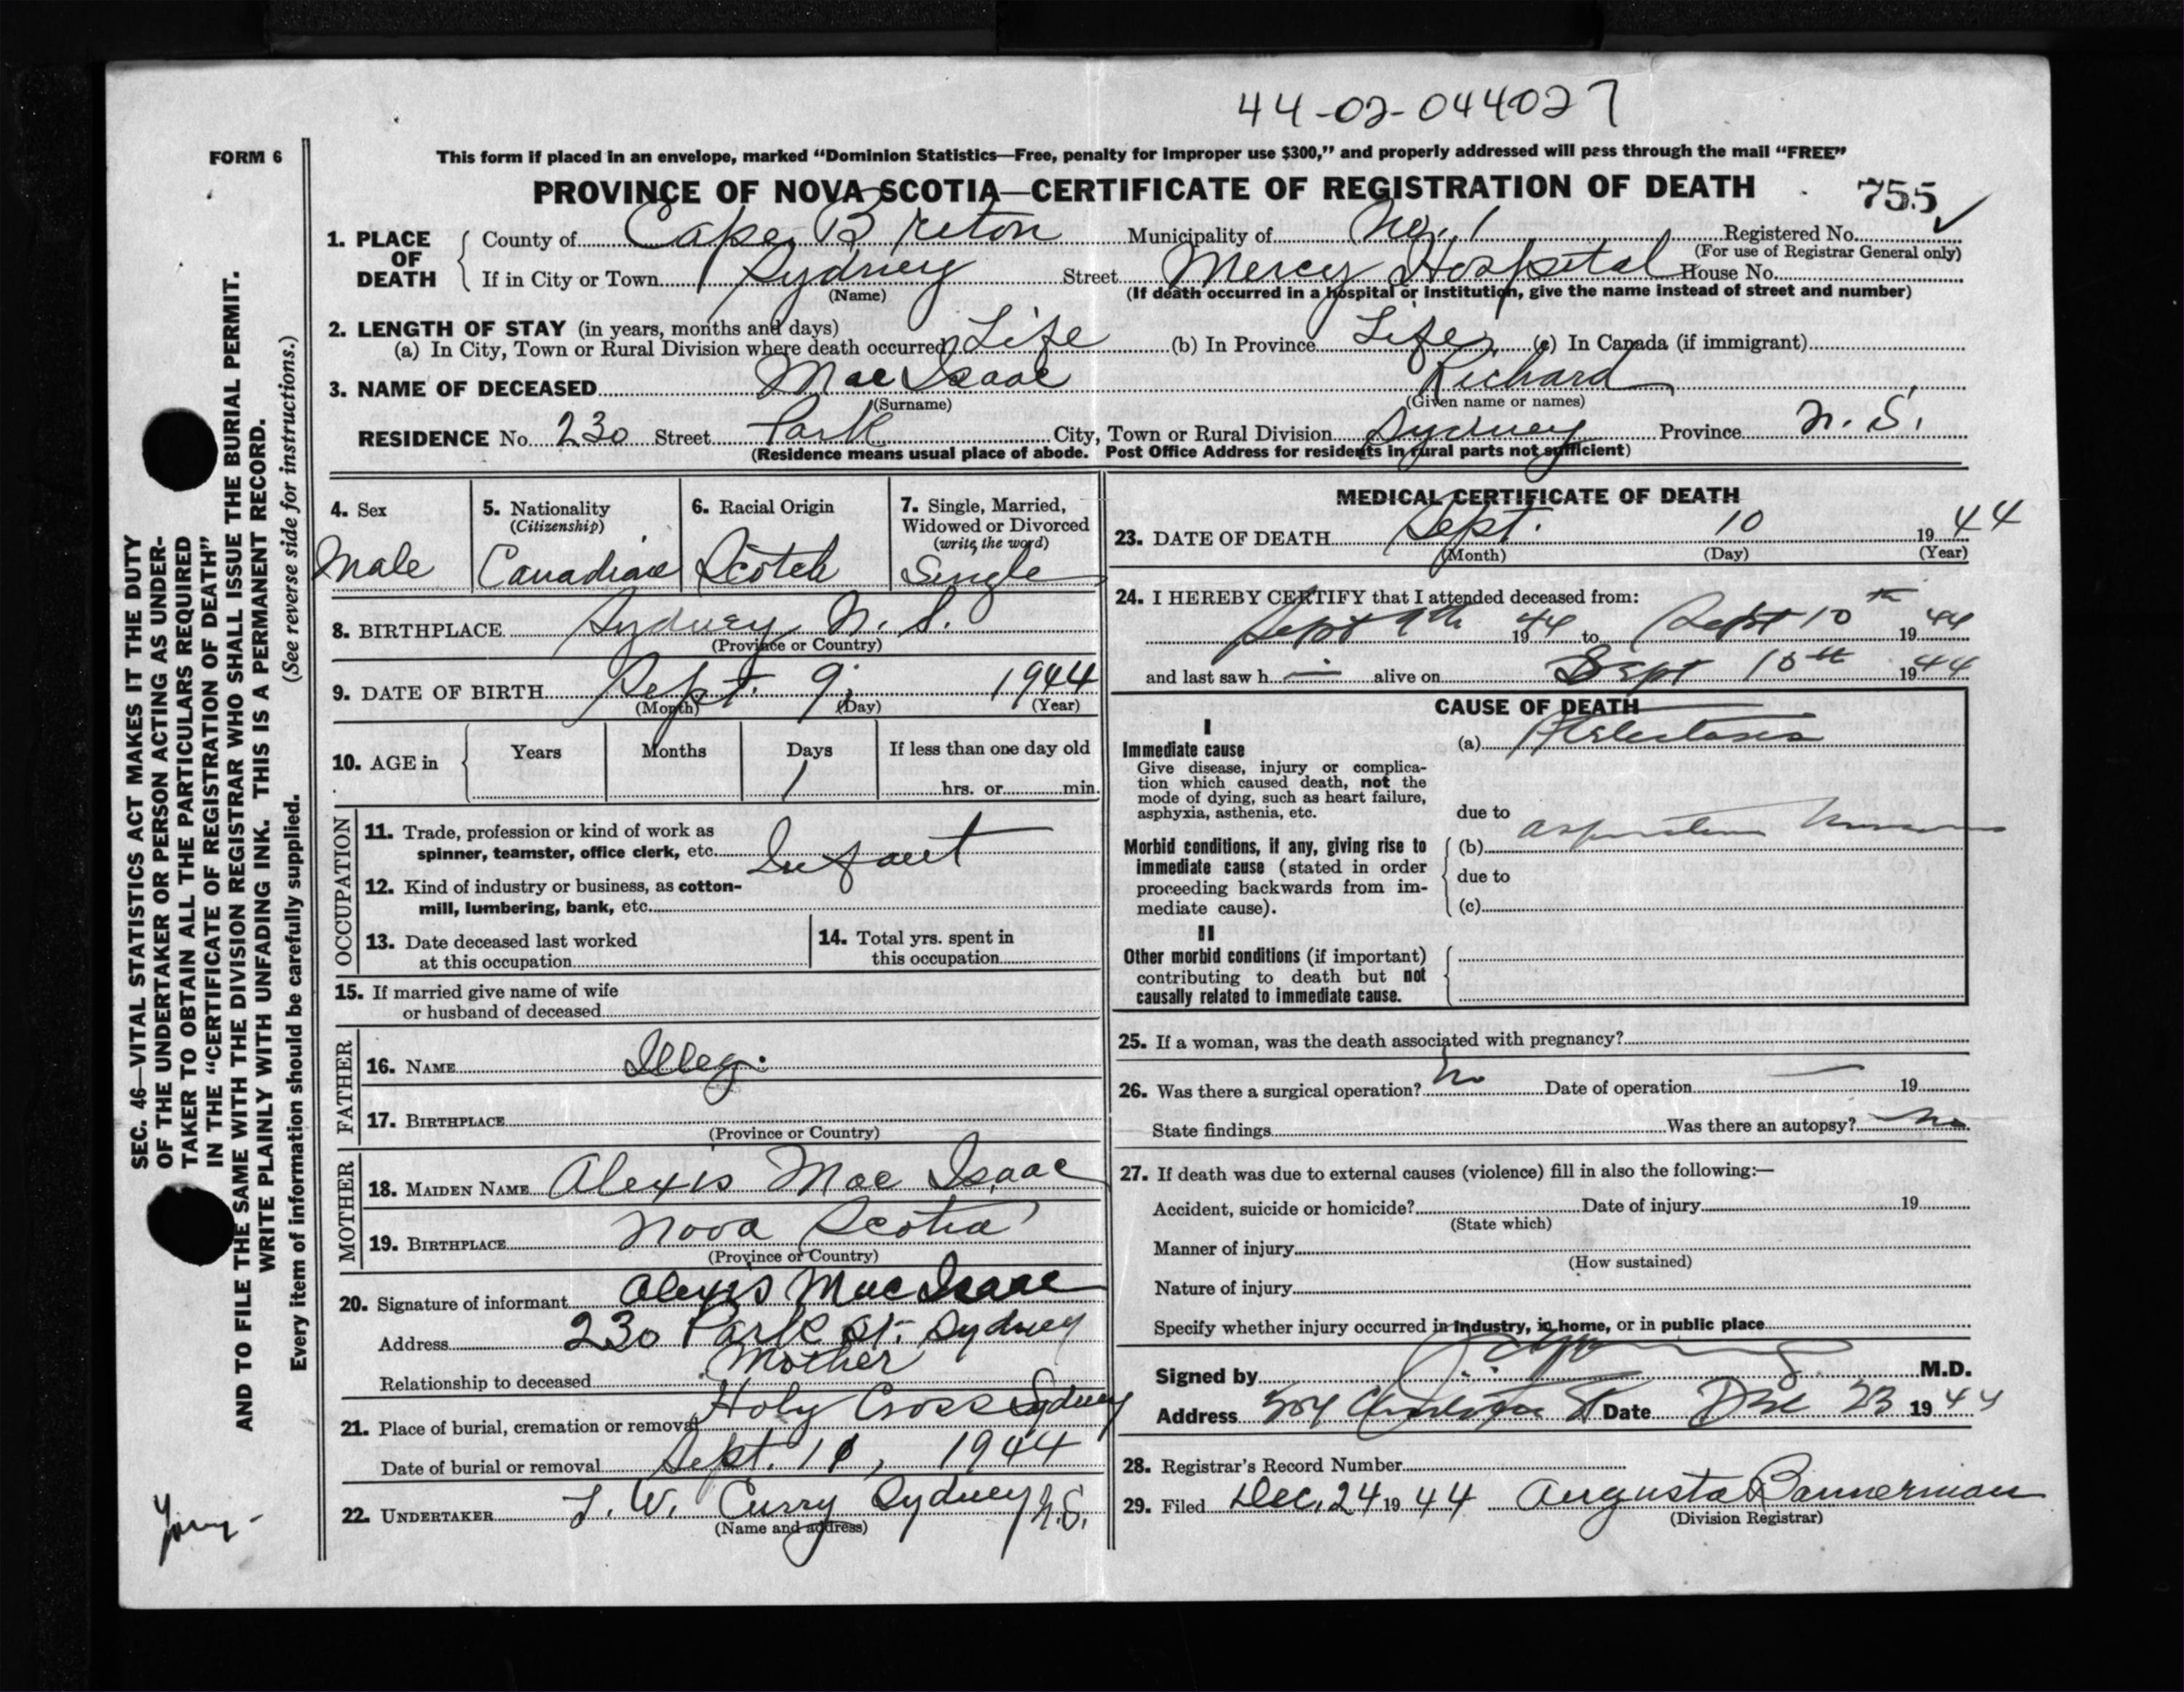 44-02-044027
FORM 6
This form if placed in an envelope, marked “Dominion Statistics—Free, penalty for improper use $300,” and properly addressed will pass through the mail “FREE”
PROVINCE OF NOVA SCOTIA—CERTIFICATE OF REGISTRATION OF DEATH
755
1. PLACE OF DEATH County of Cape Breton Municipality of No. 1 Registered No.
(For use of Registrar General only)
If in City or Town Sydney Street Mercy Hospital House No.
(Name) (If death occurred in a hospital or institution, give the name instead of street and number)
2. LENGTH OF STAY (in years, months and days)
(a) In City, Town or Rural Division where death occurred Life (b) In Province Life (c) In Canada (if immigrant)
3. NAME OF DECEASED MacIsaac Richard
(Surname) (Given name or names)
RESIDENCE No. 230 Street Park City, Town or Rural Division Sydney Province N. S.
(Residence means usual place of abode. Post Office Address for residents in rural parts not sufficient)
4. Sex Male
5. Nationality (Citizenship) Canadian
6. Racial Origin Scotch
7. Single, Married, Widowed or Divorced (write the word) Single
8. BIRTHPLACE Sydney N. S.
(Province or Country)
9. DATE OF BIRTH Sept. 9, 1944
(Month) (Day) (Year)
10. AGE in Years Months Days If less than one day old
1 hrs. or min.
OCCUPATION
11. Trade, profession or kind of work as
spinner, teamster, office clerk, etc. Infant
12. Kind of industry or business, as cotton-
mill, lumbering, bank, etc.
13. Date deceased last worked
at this occupation
14. Total yrs. spent in
this occupation
15. If married give name of wife
or husband of deceased
FATHER
16. NAME Illeg.
17. BIRTHPLACE
(Province or Country)
MOTHER
18. MAIDEN NAME Alexis Mac Isaac
19. BIRTHPLACE Nova Scotia
(Province or Country)
20. Signature of informant Alexis MacIsaac
Address 230 Park St. Sydney
Relationship to deceased Mother
21. Place of burial, cremation or removal Holy Cross Sydney
Date of burial or removal Sept. 11, 1944
22. UNDERTAKER W. Curry Sydney N.S.
(Name and address)
MEDICAL CERTIFICATE OF DEATH
23. DATE OF DEATH Sept. 10 1944
(Month) (Day) (Year)
24. I HEREBY CERTIFY that I attended deceased from:
Sept 9th 1944 to Sept 10th 1944
and last saw h alive on Sept 10th 1944
CAUSE OF DEATH
I
Immediate cause (a) Atelectasis
Give disease, injury or complica-
tion which caused death, not the
mode of dying, such as heart failure,
asphyxia, asthenia, etc.
due to
Morbid conditions, if any, giving rise to (b)
immediate cause (stated in order
proceeding backwards from im-
mediate cause).
due to
(c)
II
Other morbid conditions (if important)
contributing to death but not
causally related to immediate cause.
25. If a woman, was the death associated with pregnancy?
26. Was there a surgical operation? no Date of operation — 19
State findings Was there an autopsy? no
27. If death was due to external causes (violence) fill in also the following:—
Accident, suicide or homicide? Date of injury 19
(State which)
Manner of injury
(How sustained)
Nature of injury
Specify whether injury occurred in industry, in home, or in public place
Signed by M.D.
Address Charlotte St Date Dec 23 1944
28. Registrar's Record Number
29. Filed Dec. 24 1944 Augusta Bannerman
(Division Registrar)
SEC. 46—VITAL STATISTICS ACT MAKES IT THE DUTY
OF THE UNDERTAKER OR PERSON ACTING AS UNDER-
TAKER TO OBTAIN ALL THE PARTICULARS REQUIRED
IN THE “CERTIFICATE OF REGISTRATION OF DEATH”
AND TO FILE THE SAME WITH THE DIVISION REGISTRAR WHO SHALL ISSUE THE BURIAL PERMIT.
WRITE PLAINLY WITH UNFADING INK. THIS IS A PERMANENT RECORD.
Every item of information should be carefully supplied. (See reverse side for instructions.)